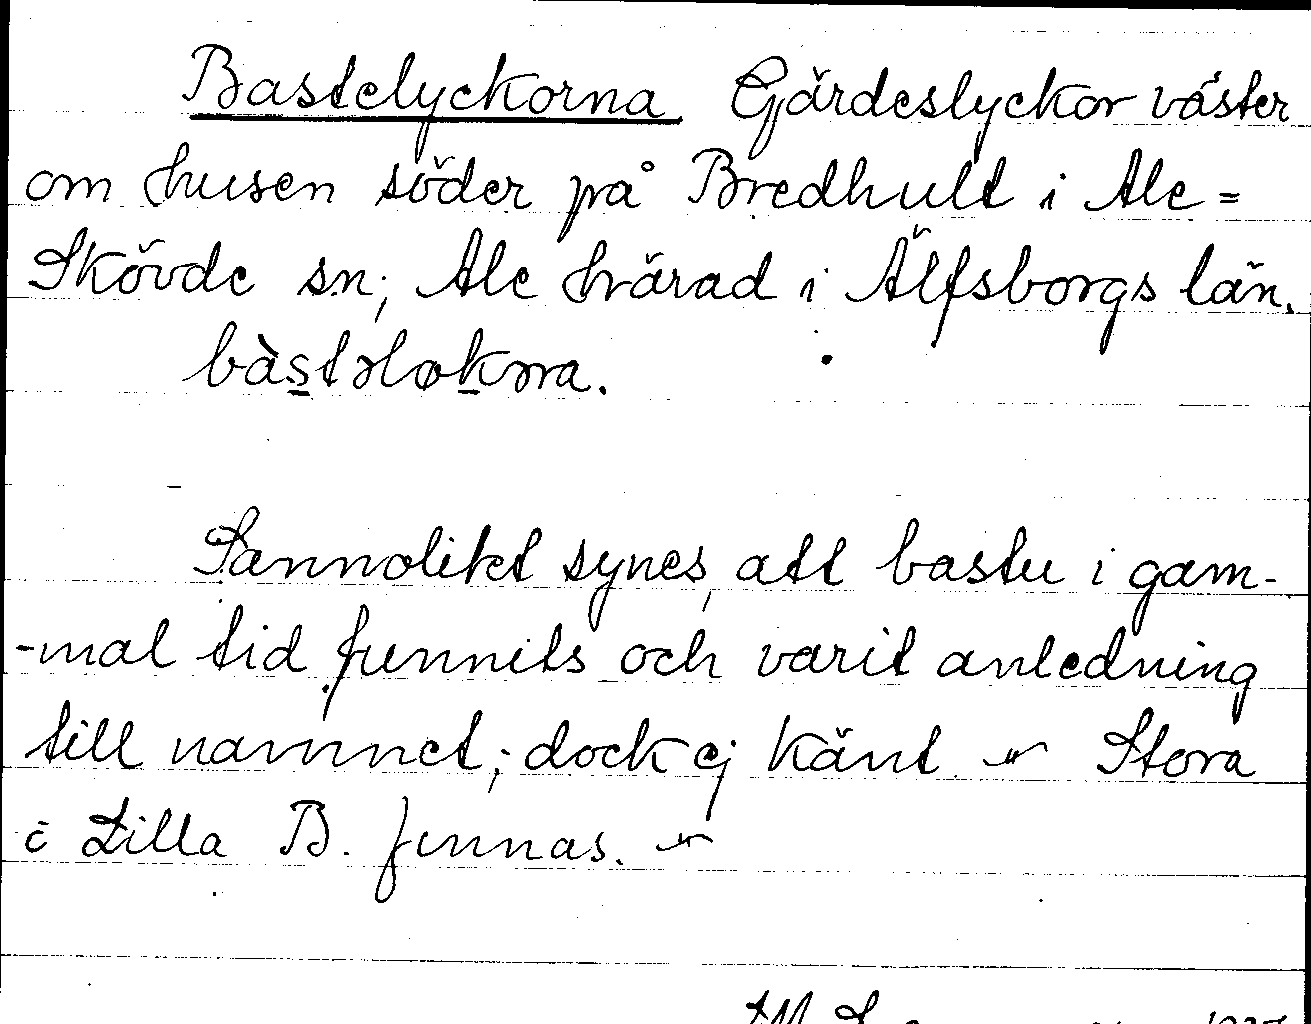 Bastelyckorna Gärdeslyckor väster
om husen söder på Bredhult i Ale=
Skövde sn; Ale härad i Älfsborgs län.
bàstələkɔrna.
Sannolikt synes, att bastu i gam-
-mal tid funnits och varit anledning
till namnet; dock ej känt. Stora
i Lilla B. finnas.